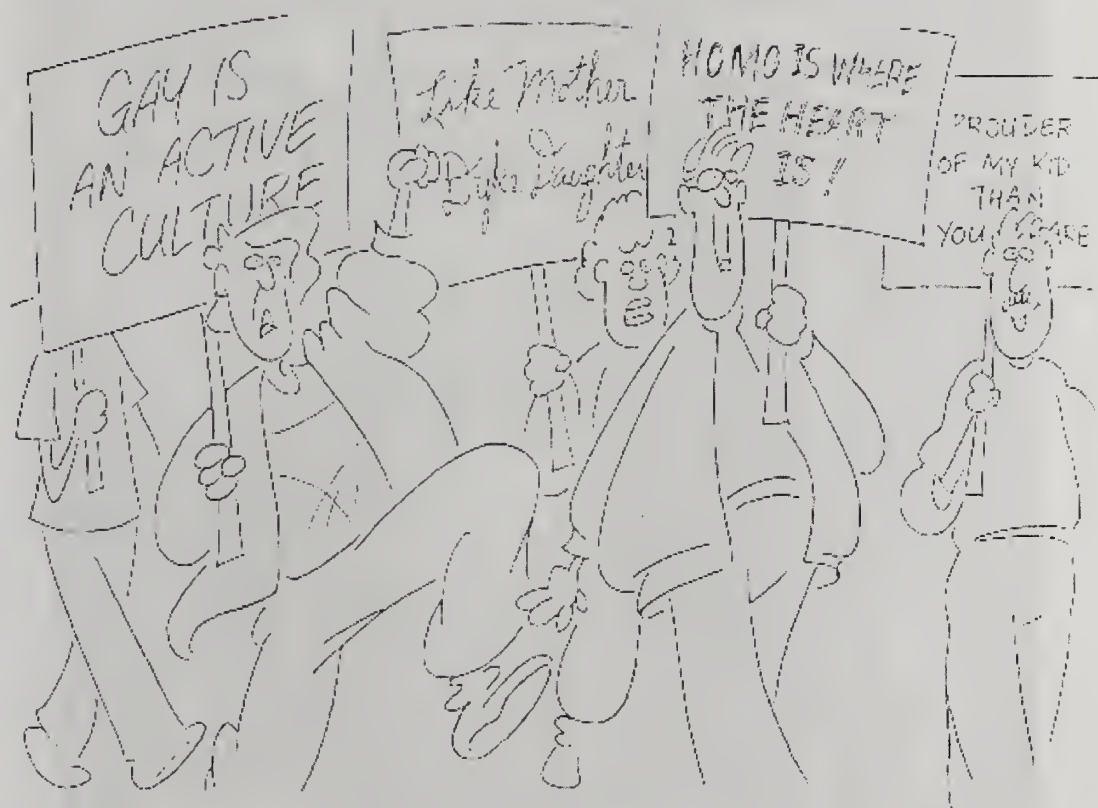 GAY IS
AN ACTIVE
CULTURE
Like Mother
Dyke Daughter
HOMO IS WHERE
THE HEART
IS!
PROUDER
OF MY KID
THAN
YOU ARE